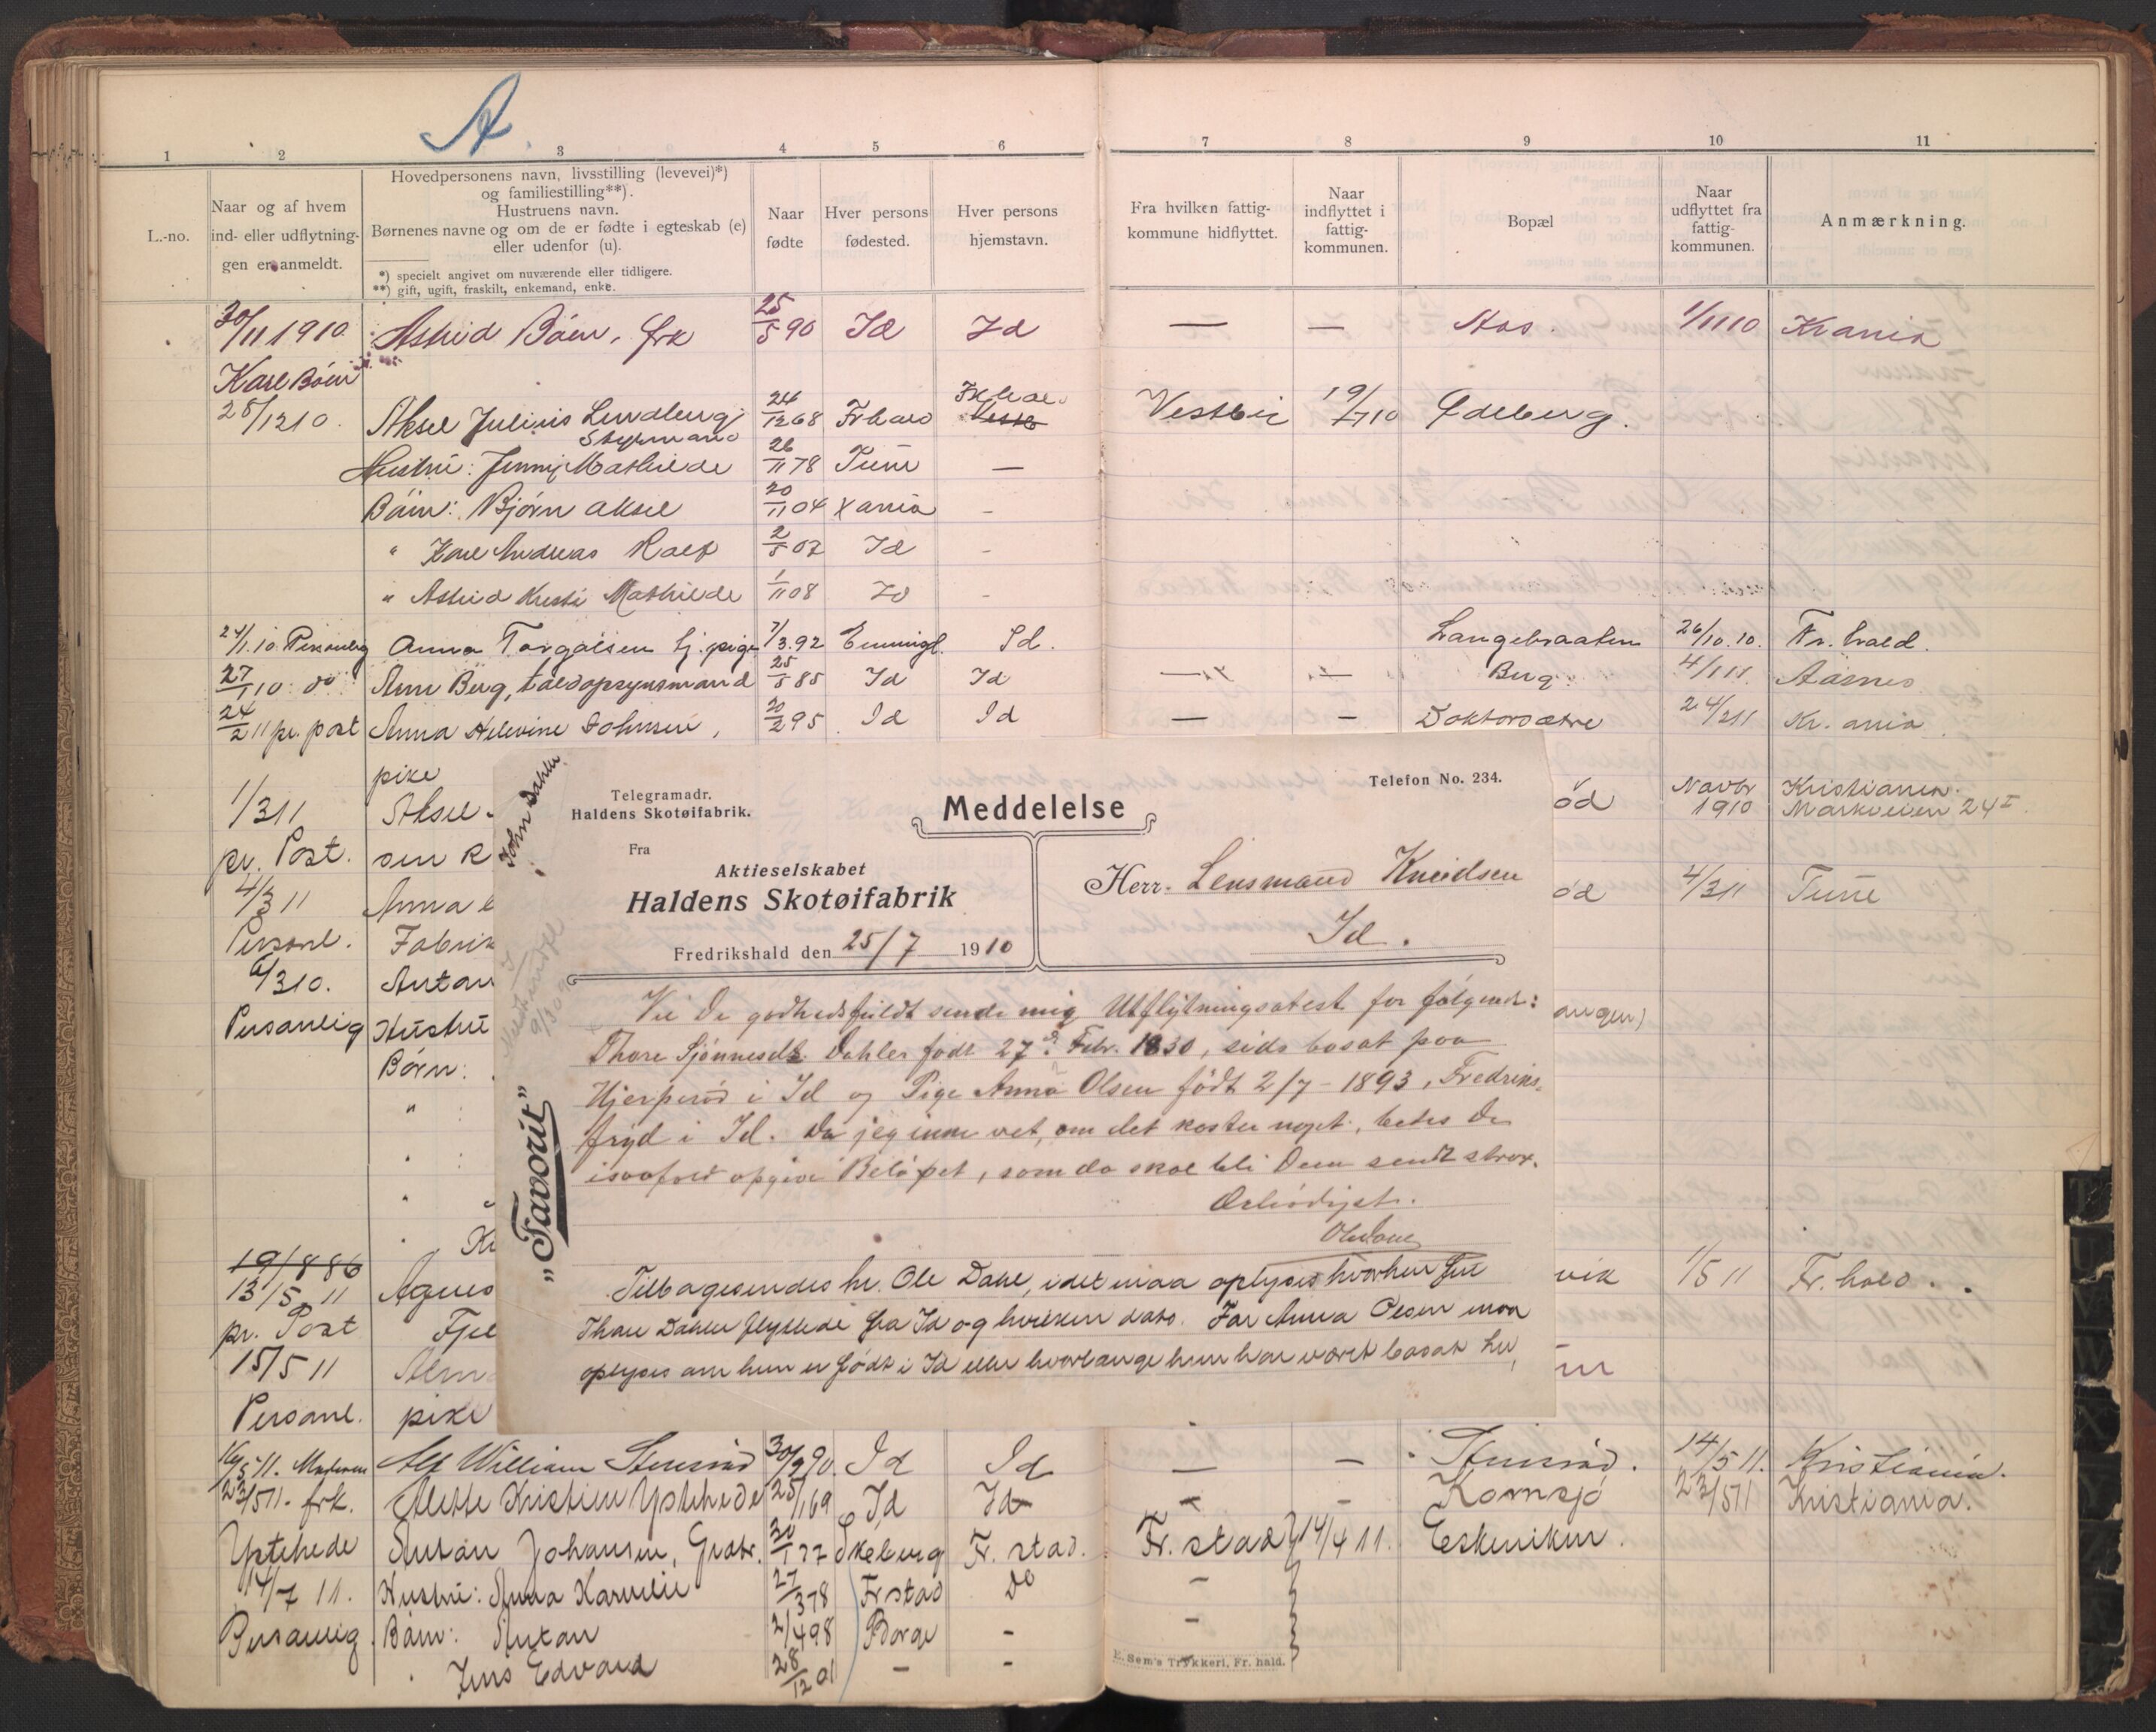 A.
1 2 3 4 5 6 7 8 9 10 11
L.-no.
Naar og af hvem
ind- eller udflytnin-
gen er anmeldt.
Hovedpersonens navn, livsstilling (levevei)*)
og familiestilling**).
Hustruens navn.
Børnenes navne og om de er fødte i egteskab (e)
eller udenfor (u).
*) specielt angivet om nuværende eller tidligere.
**) gift, ugift, fraskilt, enkemand, enke.
Naar
fødte
Hver persons
fødested.
Hver persons
hjemstavn.
Fra hvilken fattig-
kommune hidflyttet.
Naar
indflyttet i
fattig-
kommunen.
Bopæl
Naar
udflyttet fra
fattig-
kommunen.
Anmærkning.
30/11 1910. Astrid Böen, frk 25/5 90 Id Id — — Aas. 1/11 10 Krania
Karl Böen
28/12 10. Aksel Julius Lundberg 24/12 68 Frhald Frhald Vestbi 19/7 10 Edeberg.
Styrmand
Hustru: Jenny Mathilde 26/11 78 Tune —
Börn: Bjørn Aksel 20/11 04 Xania -
" Karl Andreas Ralf 2/5 07 Id -
" Astrid Kirsti Mathilde 1/11 08 Id -
24/1.10. Personlig Anna Torgalsen tj. pige 7/3.92 Enningd. Id. Langebraaten 26/10.10. Fr.hald.
27/1 10 do Arne Berg, toldopsynsmand 25/5 85 Id Id — — Berg. 4/1 11. Aasnes
24/2 11 pr. post Anna Helevine Johnsen, 20/2 95 Id Id — — Doktorsætre 24/2 11 Kr.ania.
pike
1/3 11 Aksel ød Novbr Kristiania.
1910 Markveien 24 I
pr. Post. sen R
4/3 11 Anna ød 4/3 11 Tune
Personl. Fabrik
6/3 10. Anton
Personlig Hustru angen)
Børn:
" :
" :
"
" K
19/8 86
13/5 11 Agnes vik 1/5 11 Fr.hald.
pr. Post Fjel
15/5 11 Alm
Personl. pike
16/5 11. Alf William Stenrød 30/9 90. Id Id — — Stenrød. 14/5 11. Kristiania.
23/5 11. frk. Alette Kristine Ystehede 25/1 69 Id Id - - Kornsjø 23/5 11 Kristiania.
Ystehede Anton Johansen, Grdbr. 30/1 77 Skeberg Fr.stad. Fr.stad 14/4 11. Eskeviken.
14/7 11. Hustru: Anna Karneliе 27/3 78 Frstad Do -
Personlig. Børn: Anton 2/4 98 Borge - -
" Jens Edvard 28/12 01 - - -
E. Sem's Trykkeri, Fr. hald.
John Dahler
„Favorit”
Telegramadr.
Haldens Skotøifabrik.
Telefon No. 234.
Meddelelse
Fra
Aktieselskabet
Haldens Skotøifabrik
Fredrikshald den 25/7 1910
Herr. Lensmand Knudsen
Id.
Vil De godhedsfuldt sende mig Utflytningsatest for følgende:
Thore Sjönnesdtr. Dahler født 27de Febr. 1830, sidst bosat paa
Hjerperød i Id og Pige Anna Olsen født 2/7 - 1893, Fredriks-
fryd i Id. Da jeg inne vet, om det koster noget, bedes De
isaafald opgive Beløpet, som da skal bli Dem sendt strax.
Ærbödigst.
Ole Dahl
Tilbagesendes hr. Ole Dahl, idet maa oplyses hvorhen fru
Thore Dahler flyttede fra Id og hvilken dato. For Anna Olsen maa
oplyses om hun er født i Id eller hvorlænge hun har været bosat her,